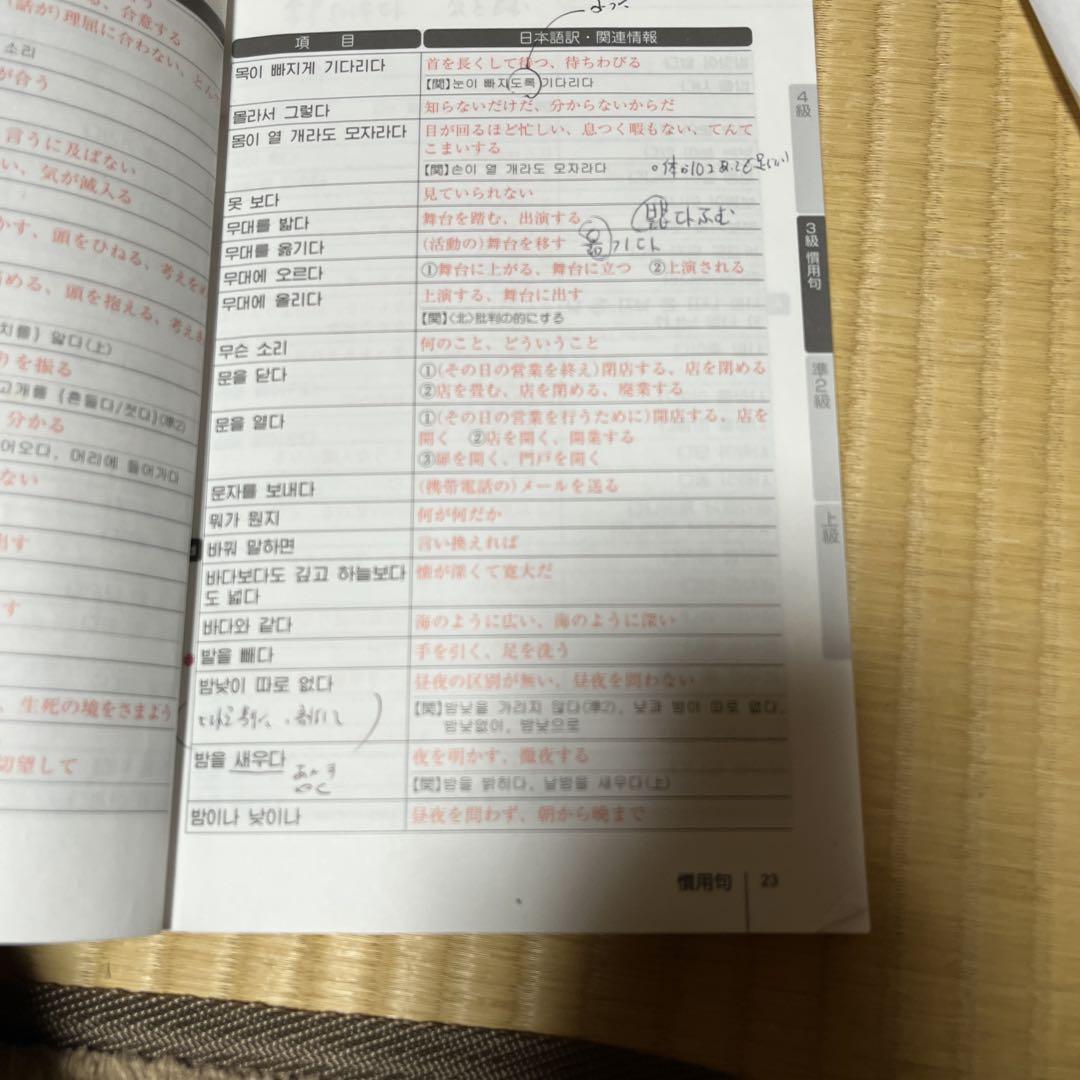 、合意する
(話が)理屈に合わない、とん
소리
が合う
言うに及ばない
い、気が滅入る
かす、頭をひねる、考えを
める、頭を抱える、考え
치를) 앓다(上)
りを振る
고개를 {흔들다/젓다}(準2)
分かる
어오다, 머리에 들어가다
ない
出す
す
、生死の境をさまよう
切望して
項 目 日本語訳・関連情報
목이 빠지게 기다리다 首を長くして待つ、待ちわびる
【関】눈이 빠지도록 기다리다
몰라서 그렇다 知らないだけだ、分からないからだ
몸이 열 개라도 모자라다 目が回るほど忙しい、息つく暇もない、てんて
こまいする
【関】손이 열 개라도 모자라다
못 보다 見ていられない
무대를 밟다 舞台を踏む、出演する 밟다ふむ
무대를 옮기다 (活動の)舞台を移す 옮기다
무대에 오르다 ①舞台に上がる、舞台に立つ ②上演される
무대에 올리다 上演する、舞台に出す
【関】〈北〉批判の的にする
무슨 소리 何のこと、どういうこと
문을 닫다 ①(その日の営業を終え)閉店する、店を閉める
②店を畳む、店を閉める、廃業する
문을 열다 ①(その日の営業を行うために)開店する、店を
開く ②店を開く、開業する
③扉を開く、門戸を開く
문자를 보내다 (携帯電話の)メールを送る
뭐가 뭔지 何が何だか
바꿔 말하면 言い換えれば
바다보다도 깊고 하늘보다 懐が深くて寛大だ
도 넓다
바다와 같다 海のように広い、海のように深い
발을 빼다 手を引く、足を洗う
밤낮이 따로 없다 昼夜の区別が無い、昼夜を問わない
【関】밤낮을 가리지 않다(準2), 낮과 밤이 따로 없다,
밤낮없이, 밤낮으로
밤을 새우다 夜を明かす、徹夜する
【関】밤을 밝히다, 날밤을 새우다(上)
밤이나 낮이나 昼夜を問わず、朝から晩まで
4級
3級 慣用句
準2級
上級
慣用句 23